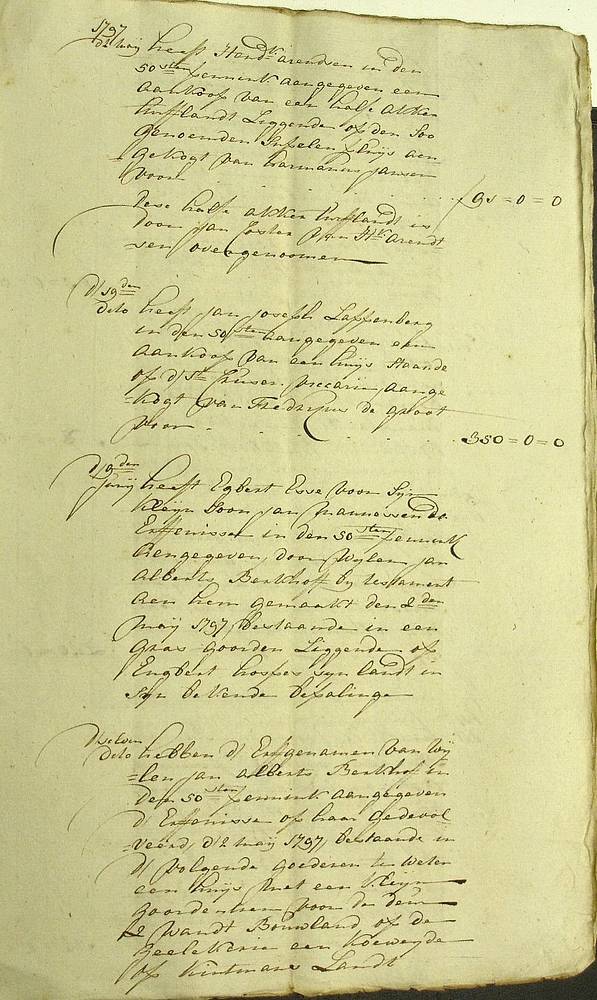 1797
d 2 Maij heeft Hend:k Arendsen in den
50 sten pennink aangegeven een
aankoop van een halfe akker
turflandt Liggende op den Soo
genoemden aen
gekogt van Harmanus Jansen
voor . . . . f 95 = 0 = 0
dese halfe akker turflandt is
door Jan van Hk Arendt
sen overgenoomen
d 19 den
dito heeft Jan Joseph Laffenberg
in den 50 sten aangegeven een
aankoop van een huijs staande
op d St. vicarie, aange
=kogt van Fredrikus de Groot
voor . . . . 350 = 0 = 0
d 9 den
Junij heeft Egbert Esse voor Sijn
kleijn Soon Jan Mannes en de
Erffenisse in den 50 sten pennink
Aengegeven, door Wijlen Jan
Alberts Berkhoff bij testament
Aen hem gemaakt den 2 den
Maij 1797, bestaande in een
gras goorden Liggende op
Engbert hosfes sijn landt in
Sijn bekende bepalinge
d selven
dito hebben d' Erffgenamen van Wij
=len Jan Alberts Berkhof in
den 50 sten pennink aangegeven
d' Erffenisse op haar gedevol
veerd, d' 2 Maij 1797, bestaande in
d' volgende goederen te weten
een huijs met een kleijn
goorden voor de deur
2 Bouwland op de
een koeweijde
op Landt